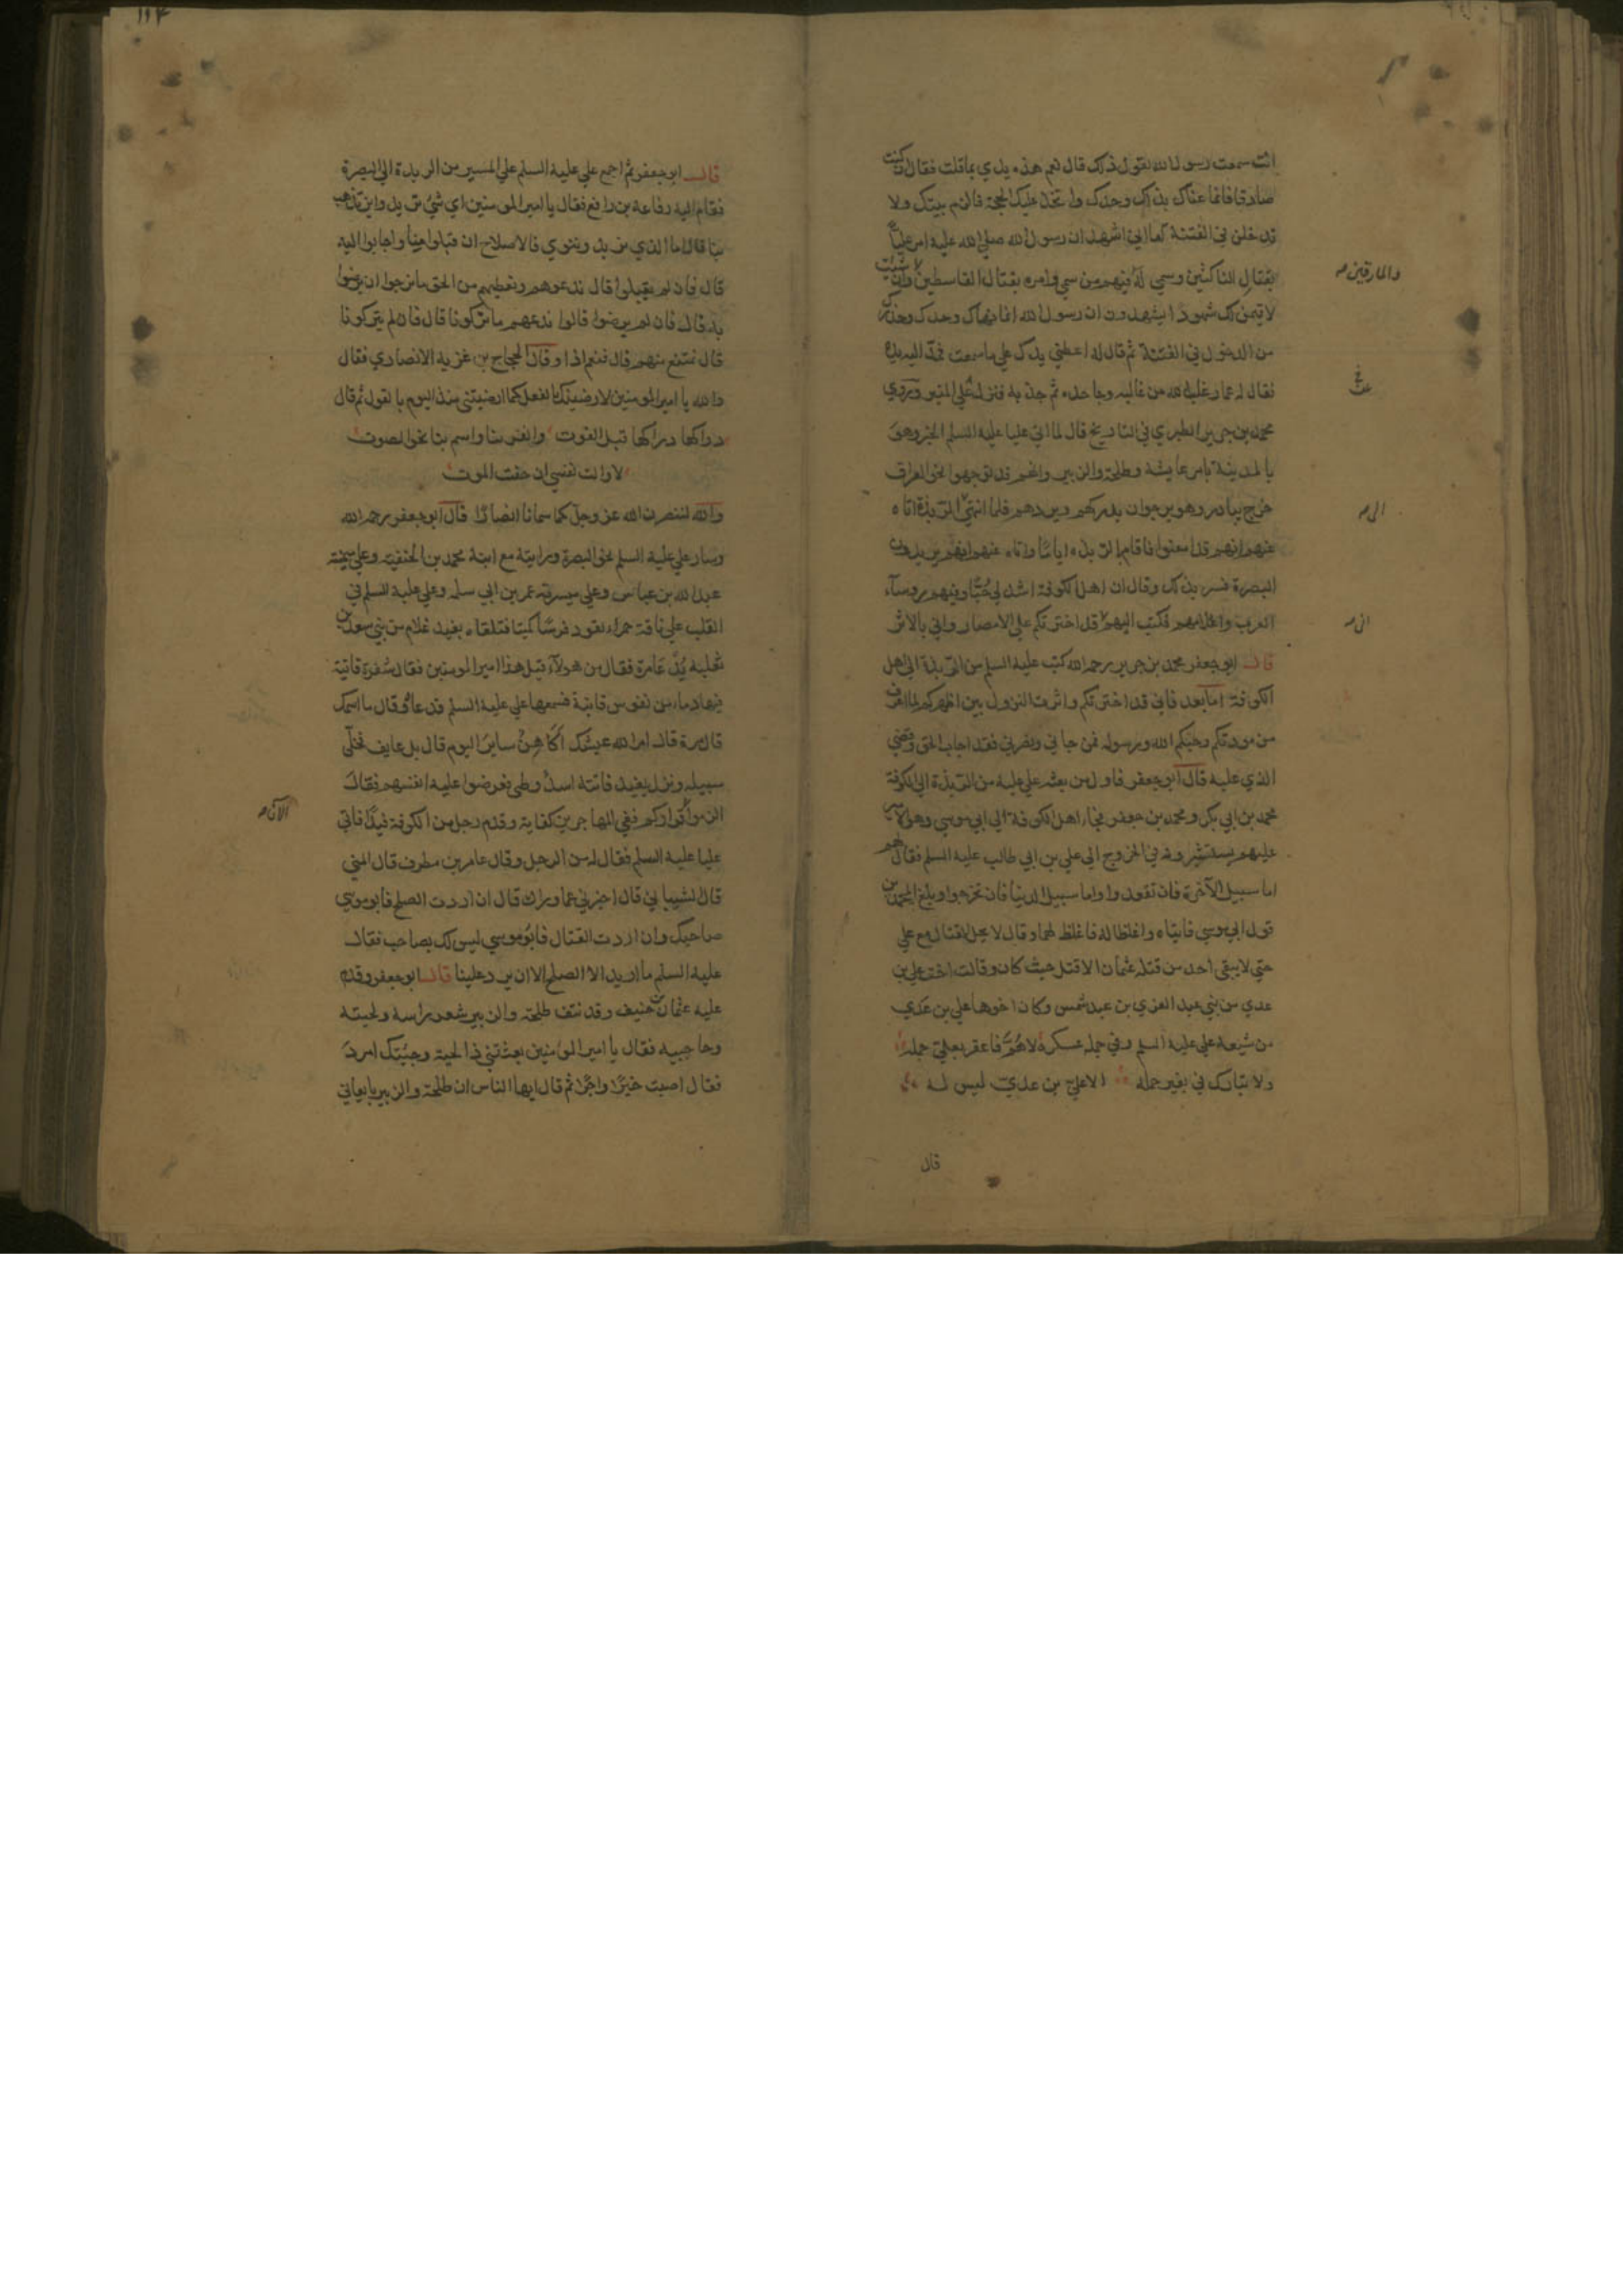 انت سمعت رسول الله يقول ذلك قال نعم هذه يدي بما قلت فقال ان كنت
صادقا فانما عناك بذلك وحدك واتخذ عليك الحجة فالزم بيتك ولا
تدخلن في الفتنة اما اني اشهد ان رسول الله صلى الله عليه امر عليا
بقتال الناكثين وسمي له فيهم من سمي وامره بقتال القاسطين وان شئت
لاقيمن لك شهودا يشهدون ان رسول الله انما نهاك وحدك وحذرك
من الدخول في الفتنة ثم قال له اعطني يدك علي ما سمعت فمد اليه يده
فقال له عمار غلب الله من غالبه وجاحده ثم جذبه فنزل علي المنبر وروي
محمد بن جرير الطبري في التاريخ قال لما اتي عليا عليه السلم الخبر وهو
بالمدينة بامر عايشة وطلحة والزبير وانهم قد توجهوا نحو العراق
خرج يبادر وهو يرجو ان يدركهم ويردهم فلما انتهي الربذة اتاه
عنهم انهم قد امعنوا فاقام بالربذه اياما واتاه عنهم انهم يريدون
البصرة فسر بذلك وقال ان اهل الكوفة اشد لي حبا وفيهم روساء
العرب واعلامهم فكتب اليهم قد اخترتكم علي الامصار واني بالاثر
قال ابو جعفر محمد بن جرير رحمه الله كتب عليه السلم من الربذة الي اهل
الكوفة اما بعد فاني قد اخترتكم واثرت النزول بين اظهركم لما اعرف
من مودتكم وحبكم الله ورسوله فمن جاني ونصرني فقد اجاب الحق وقضي
الذي عليه قال ابو جعفر فاول من بعثه علي عليه من الربذة الي الكوفة
محمد بن ابي بكر ومحمد بن جعفر فجاء اهل الكوفة الي ابي موسي وهو الامير
عليهم يستشيرونه في الخروج الي علي بن ابي طالب عليه السلم فقال لهم
اما سبيل الآخرة فان تقعدوا واما سبيل الدنيا فان تخرجوا وبلغ المحمدين
قول ابي موسي فاتياه واغلظا له فاغلظ لهما وقال لا يحل القتال مع علي
حتي لا يبقي احد من قتلة عثمان الا قتل حيث كان وقالت اخت علي بن
عدي من بني عبد العزي بن عبد شمس وكان اخوها علي بن عدي
من شيعة علي عليه السلم وفي جملة عسكره لاهم فاعقر بعلي جمله
ولا تبارك في بعير حمله الا علي بن عدي ليس له
والمارقين صح
الي صح
اني صح
قال
١١٤
قال ابو جعفر ثم اجمع علي عليه السلم علي المسير من الربذة الي البصرة
فقام اليه رفاعة بن رافع فقال يا امير المومنين اي شيء تريد واين تذهب
بنا قال اما الذي نريد وننوي فالاصلاح ان قبلوا منا واجابوا اليه
قال فان لم يقبلوا قال ندعوهم ونعطيهم من الحق ما نرجوا ان يرضوا
به قال فان لم يرضوا قالوا ندعهم ما تركونا قال فان لم يتركونا
قال نمتنع منهم قال فنعم اذا وقال الحجاج بن غزية الانصاري فقال
والله يا امير المومنين لارضينك بالفعل كما ارضيتني منذ اليوم بالقول ثم قال
دراكها دراكها قبل الفوت وانفر بنا واسم بنا نحو الصوت
لا والت نفسي ان خفت الموت
والله لننصرن الله عز وجل كما سمانا انصارا قال ابو جعفر رحمه الله
وسار علي عليه السلم نحو البصرة ورايته مع ابنه محمد بن الحنفية وعلي ميمنته
عبد الله بن عباس وعلي ميسرته عمر بن ابي سلمه وعلي عليه السلم في
القلب علي ناقة حمراء يقود فرسا كميتا فتلقاه بفيد غلام من بني سعد بن
ثعلبة يدعي مرة فقال من هولآء قيل هذا امير المومنين فقال سفرة قانية
فيها دماء من نفوس فانية فسمعها علي عليه السلم فدعاه وقال ما اسمك
قال مرة قال امر الله عيشك اكاهن ساير اليوم قال بل عايف فخلي
سبيله ونزل بفيد فاتته اسد وطي فعرضوا عليه انفسهم فقال
الزموا قراركم ففي المهاجرين كفاية وقدم رجل من الكوفة فيدا فاتي
عليا عليه السلم فقال له من الرجل وقال عامر بن مطرف قال الليثي
قال الشيباني قال اخبرني عما وراك قال ان اردت الصلح فابو موسي
صاحبك وان اردت القتال فابو موسي ليس لك بصاحب فقال
عليه السلم ما اريد الا الصلح الا ان يرد علينا قال ابو جعفر وقدم
عليه عثمان بن حنيف وقد نتف طلحة والزبير شعر راسه ولحيته
وحاجبيه فقال يا امير المومنين بعثتني ذا لحية وجيتك امرد
فقال اصبت خيرا واجرا ثم قال ايها الناس ان طلحة والزبير بايعاني
الآن صح